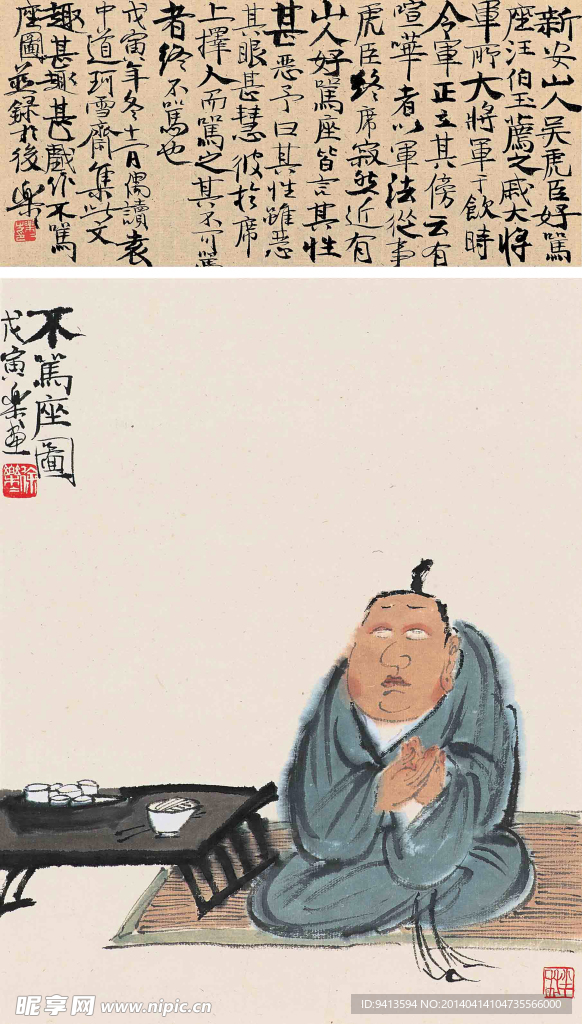 新安山人吴虎臣好罵
座汪伯玉薦之戚大將
軍所大將軍于飲時
令軍正立其傍云有
喧嘩者以軍法從事
虎臣終席寂然近有
山人好罵座皆言其性
甚惡予曰其性雖惡
其眼甚慧彼於席
上擇人而罵之其不可罵
者終不罵也
戊寅年冬十一月偶讀袁
中道珂雪齋集此文
趣甚趣甚戲作不罵
座圖並録於後樂
不罵座圖
戊寅樂畫
昵图网 www.nipic.cn
ID:9413594 NO:20140414104735566000